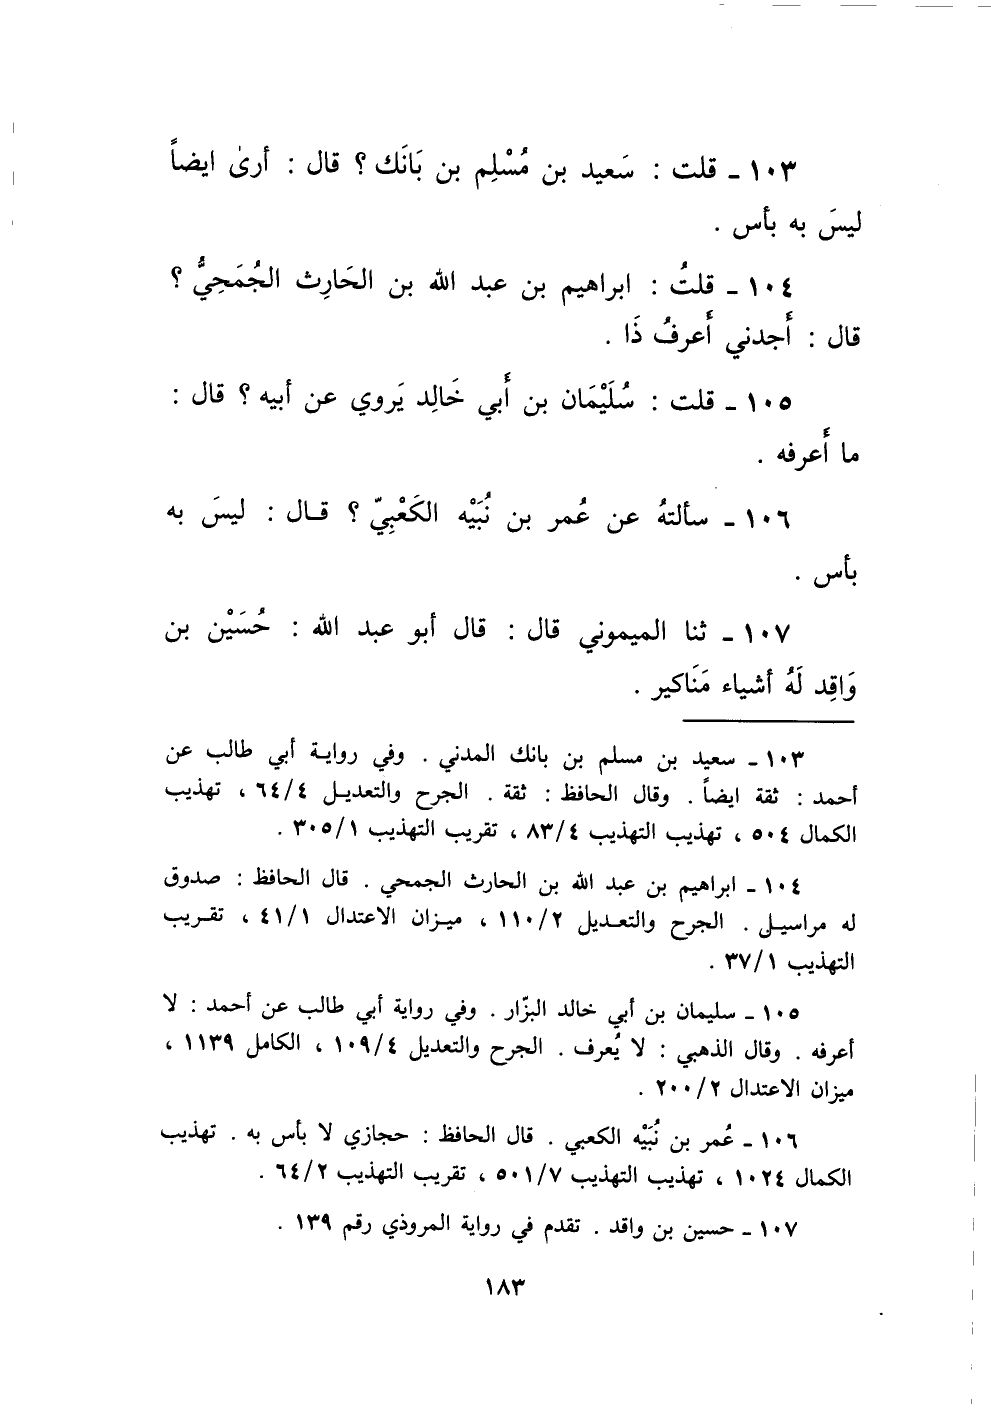 ١٠٣ ـ قلت : سَعيد بن مُسْلِم بن بَانَك ؟ قال : أرىٰ ايضاً
ليسَ به بأس .
١٠٤ ـ قلتُ : ابراهيم بن عبد الله بن الحَارِث الجُمَحِيُّ ؟
قال : أَجدني أَعرفُ ذَا .
١٠٥ ـ قلت : سُلَيْمَان بن أَبي خَالِد يَروي عن أبيه ؟ قال :
ما أَعرفه .
١٠٦ ـ سألتهُ عن عُمر بن نُبَيْه الكَعْبِيّ ؟ قـال : ليسَ به
بأس .
١٠٧ ـ ثنا الميموني قال : قال أبو عبد الله : حُسَيْن بن
وَاقِد لَهُ أشياء مَنَاكير .
١٠٣ ـ سعيد بن مسلم بن بانك المدني . وفي روايـة أبي طالب عن
أحمد : ثقة ايضاً . وقال الحافظ : ثقة . الجرح والتعديـل ٦٤/٤ ، تهذيب
الكمال ٥٠٤ ، تهذيب التهذيب ٨٣/٤ ، تقريب التهذيب ٣٠٥/١ .
١٠٤ ـ ابراهيم بن عبد الله بن الحارث الجمحي . قال الحافظ : صدوق
له مراسيـل . الجرح والتعـديل ١١٠/٢ ، ميـزان الاعتدال ٤١/١ ، تقـريب
التهذيب ٣٧/١ .
١٠٥ ـ سليمان بن أبي خالد البزّار . وفي رواية أبي طالب عن أحمد : لا
أعرفه . وقال الذهبي : لا يُعرف . الجرح والتعديل ١٠٩/٤ ، الكامل ١١٣٩ ،
ميزان الاعتدال ٢٠٠/٢ .
١٠٦ ـ عُمر بن نُبَيْه الكعبي . قال الحافظ : حجازي لا بأس به . تهذيب
الكمال ١٠٢٤ ، تهذيب التهذيب ٥٠١/٧ ، تقريب التهذيب ٦٤/٢ .
١٠٧ ـ حسين بن واقد . تقدم في رواية المروذي رقم ١٣٩ .
١٨٣